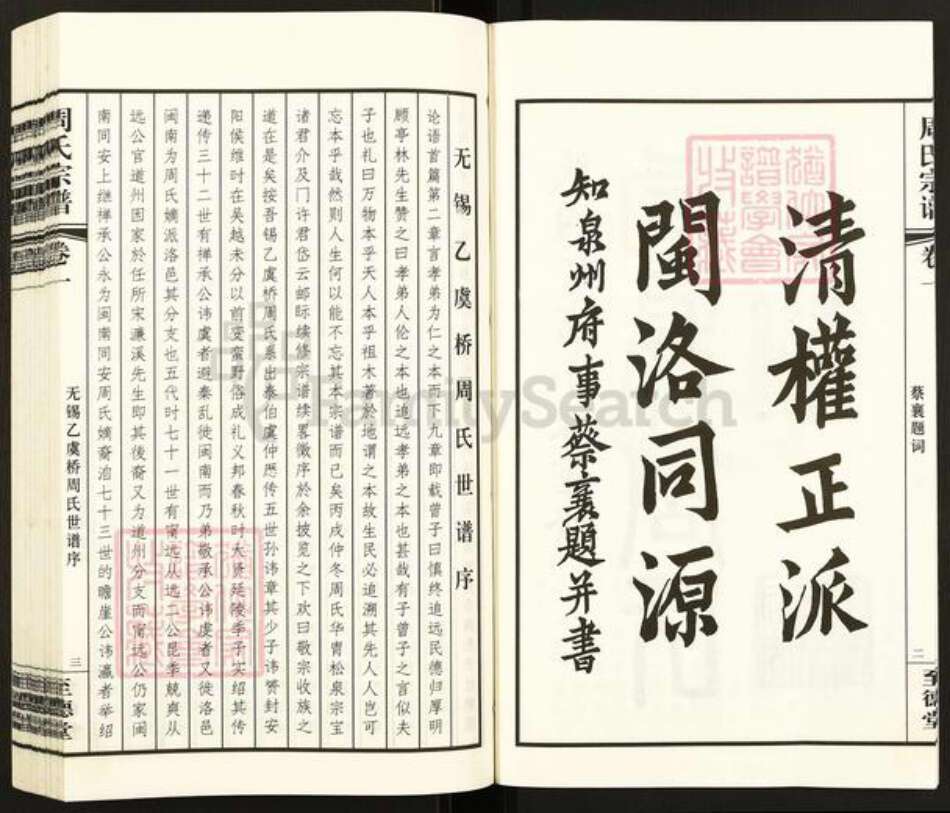 周氏宗谱
卷一
蔡襄题词
二
至德堂
清權正派
閩洛同源
知泉州府事蔡襄題并書
无锡乙虞桥周氏世谱序
论语首篇第二章言孝弟为仁之本而下九章即载曾子曰慎终追远民德归厚明
顾亭林先生赞之曰孝弟人伦之本也追远孝弟之本也甚哉有子曾子之言似夫
子也礼曰万物本乎天人本乎祖木著於地谓之本故生民必追溯其先人人岂可
忘本乎哉然则人生何以能不忘其本宗谱而已矣丙戌仲冬周氏华青松泉宗宝
诸君介及门许君岱云邮际续修宗谱续畧徵序於余披览之下欢曰敬宗收族之
道在是矣按吾锡乙虞桥周氏系出泰伯虞仲悉传五世孙讳章其少子讳赟封安
阳侯维时在吴越未分以前变蛮野俗成礼义邦春秋时大贤延陵季子实绍其传
递传三十二世有禅承公讳虞者避秦乱徙闽南而乃弟敬承公讳虔者又徙洛邑
闽南为周氏嫡派洛邑其分支也五代时七十一世有甯远从远二公昆季兢爽从
远公官道州因家於任所宋濂溪先生即其後裔又为道州分支而甯远公仍家闽
南同安上继禅承公永为闽南同安周氏嫡裔洎七十三世的瞻崖公讳瀛者举绍
周氏宗谱
卷一
无锡乙虞桥周氏世谱序
三
至德堂
FamilySearch